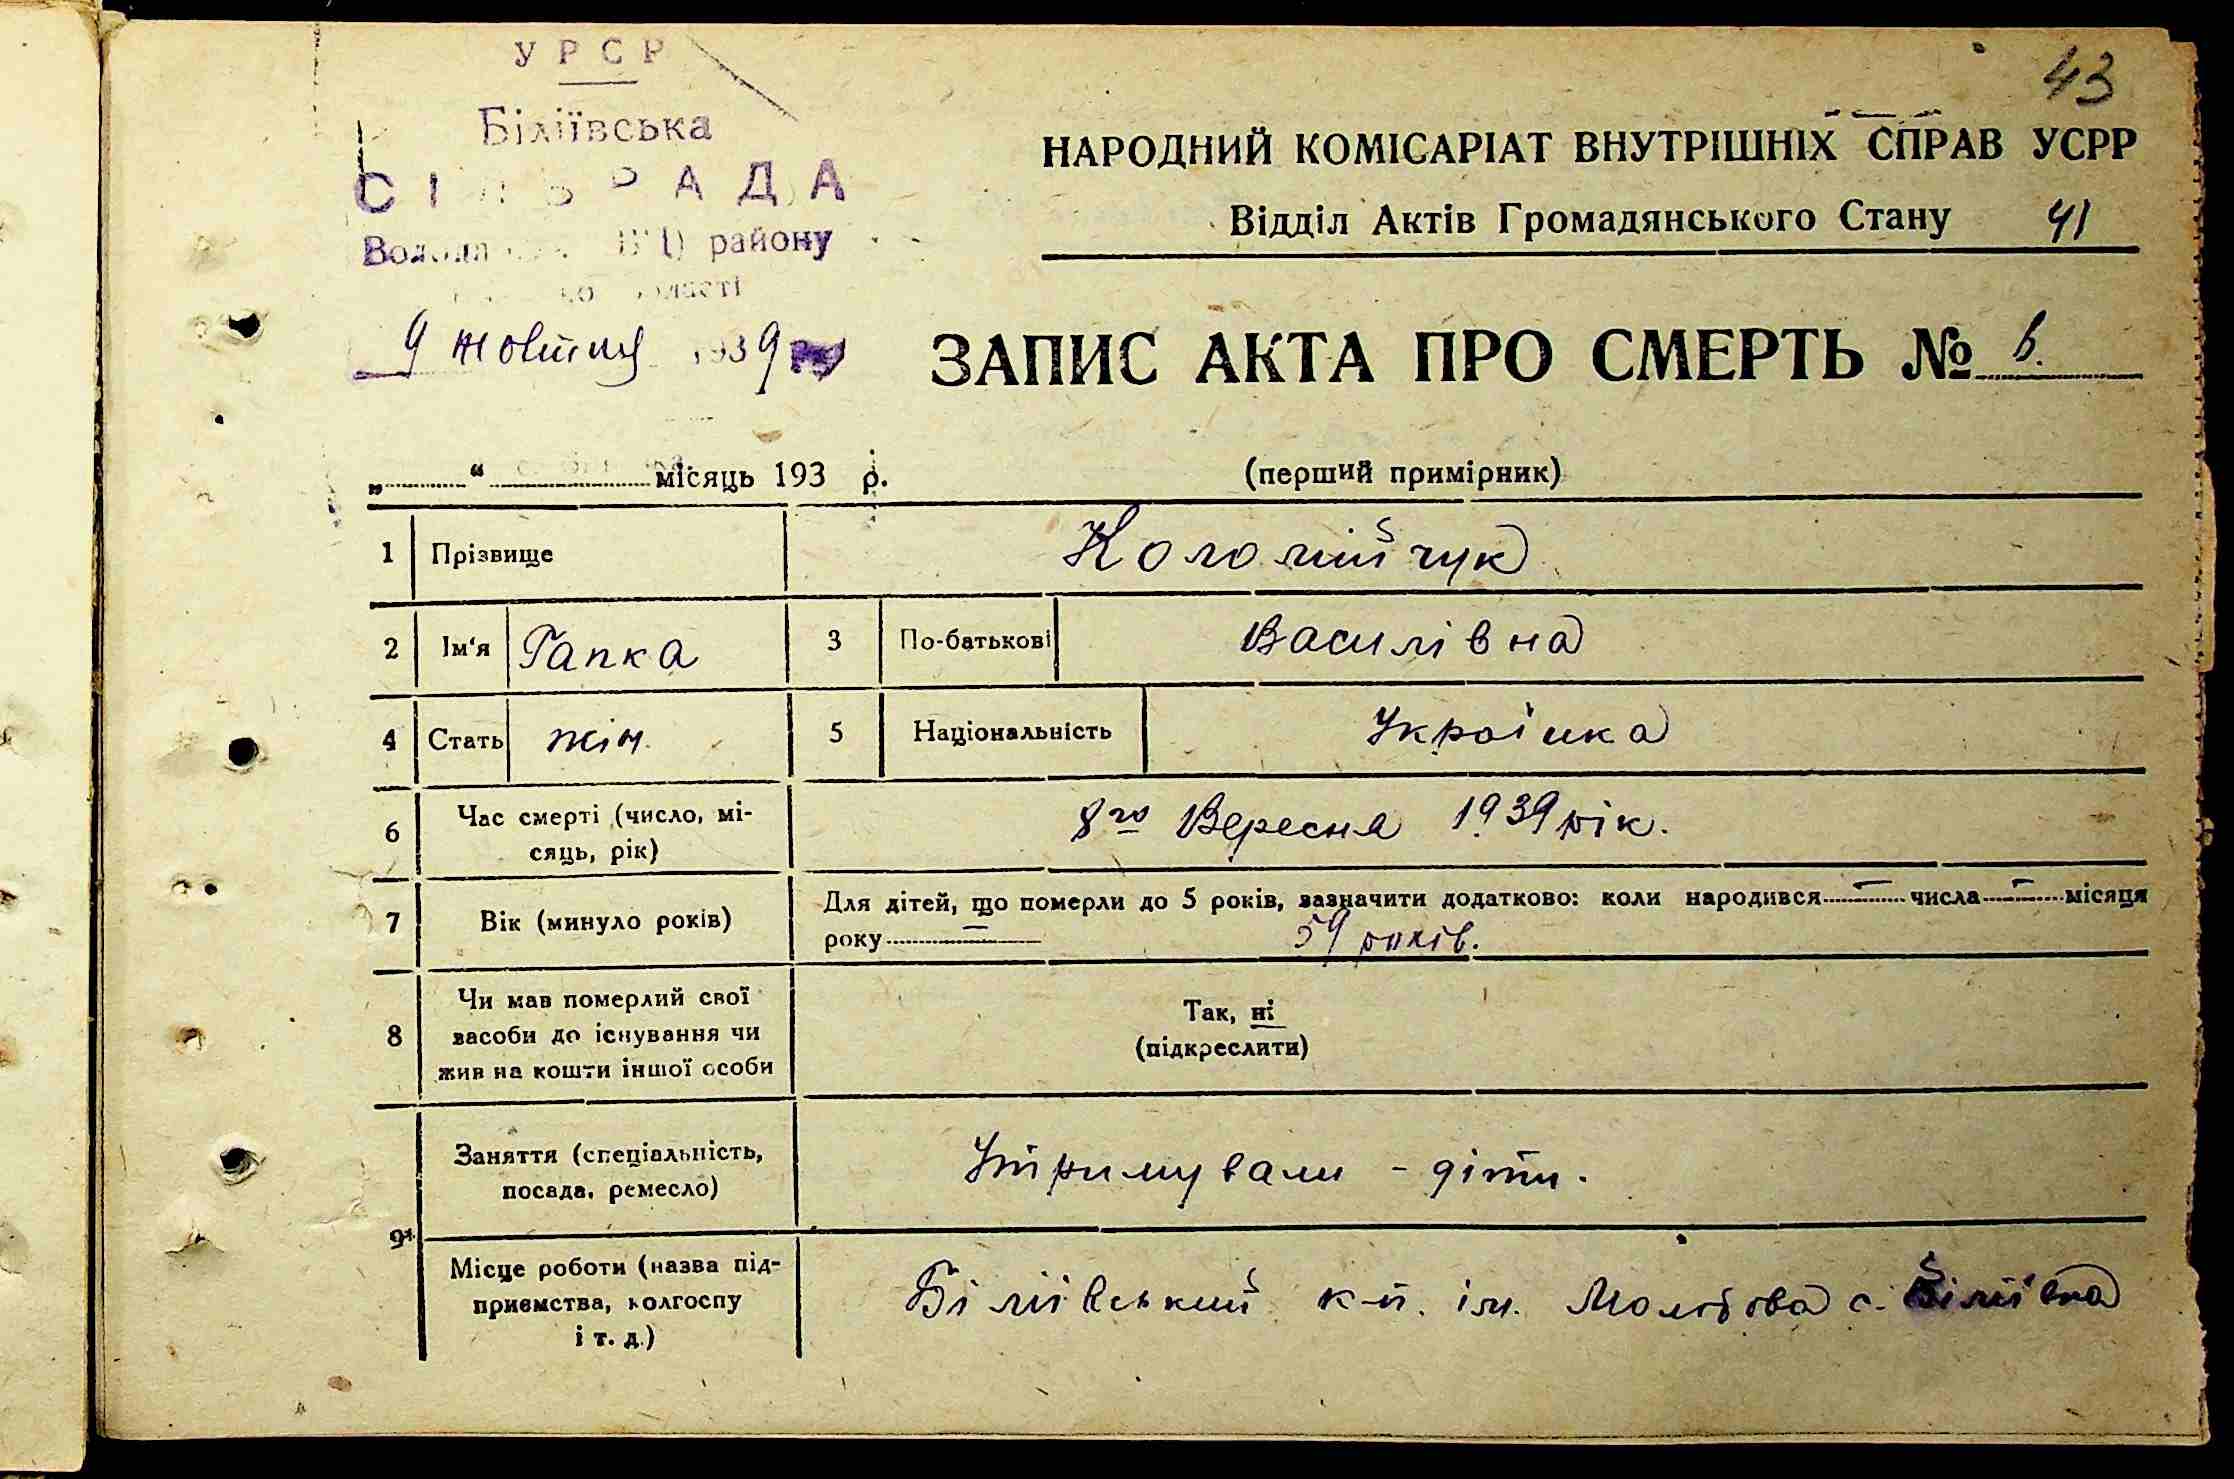 43
УРСР
Біліївська
СІЛЬРАДА
району
9 Жовтня 1939
НАРОДНИЙ КОМІСАРІАТ ВНУТРІШНІХ СПРАВ УСРР
Відділ Актів Громадянського Стану 41
ЗАПИС АКТА ПРО СМЕРТЬ № 6.
„ “ місяць 193 р.
(перший примірник)
1 Прізвище Коломійчук
2 Ім'я Гапка 3 По-батькові Василівна
4 Стать жін. 5 Національність Українка
6 Час смерті (число, мі-
сяць, рік) 8го Вересня 1939 рік.
7 Вік (минуло років) Для дітей, що померли до 5 років, зазначити додатково: коли народився — числа — місяця
року — 59 років.
8 Чи мав померлий свої
засоби до існування чи
жив на кошти іншої особи
Так, ні
(підкреслити)
9 Заняття (спеціальність,
посада, ремесло) Утримували - діти.
Місце роботи (назва під-
приємства, колгоспу
і т. д.) Біліївський к-п. ім. Молотова с. Біліївка